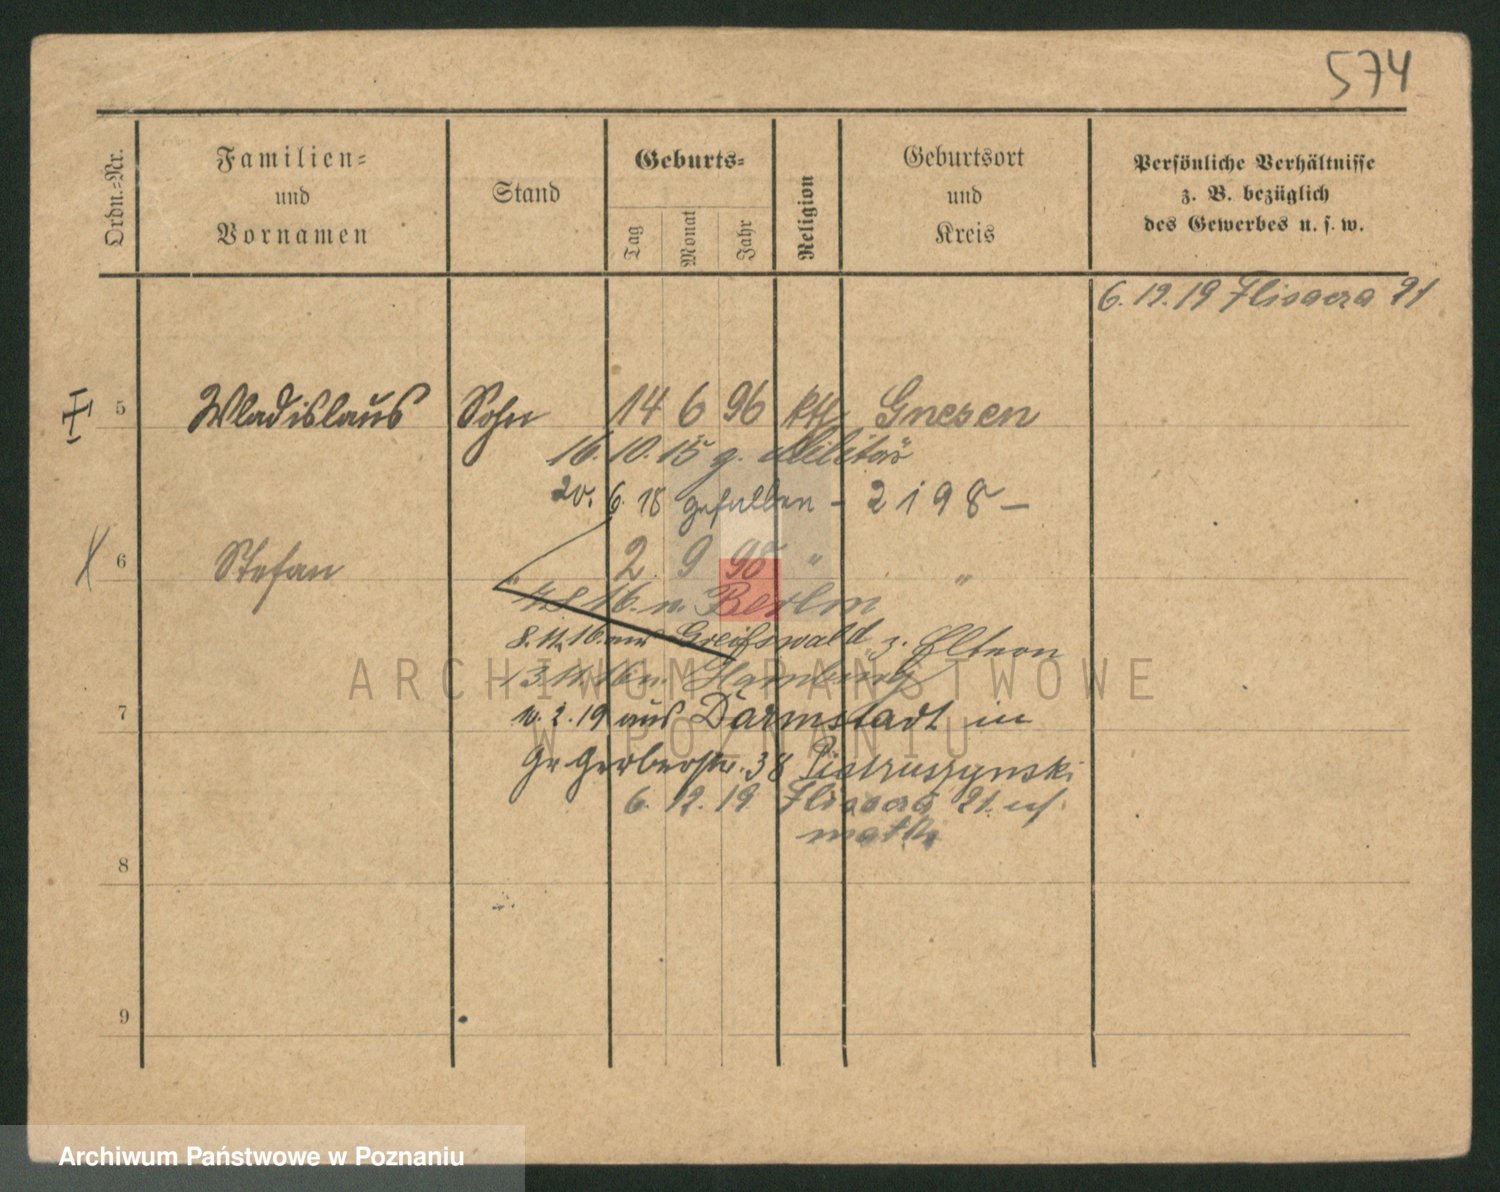 574
Ordn.-Nr.
Familien-
und
Vornamen
Stand
Geburts-
Tag
Monat
Jahr
Religion
Geburtsort
und
Kreis
Persönliche Verhältnisse
z. B. bezüglich
des Gewerbes u. s. w.
6.12.19 Flisacza 21
5 Wladislaus Sohn 14 6 96 kth Gnesen
16.10.15 z. Militär
20. 6 18 gefallen - 2198 -
6 Stefan " 2 9 98 " "
16. n. Berlin
8.11.16 aus Greifswald z. Eltern
13.11.16 n. Hamburg
7
10.2.19 aus Darmstadt in
Gr Gerberstr. 38 Pietruszynski
6. 12. 19 Flisacza 21.
matki
8
9
ARCHIWUM PAŃSTWOWE
W POZNANIU
Archiwum Państwowe w Poznaniu